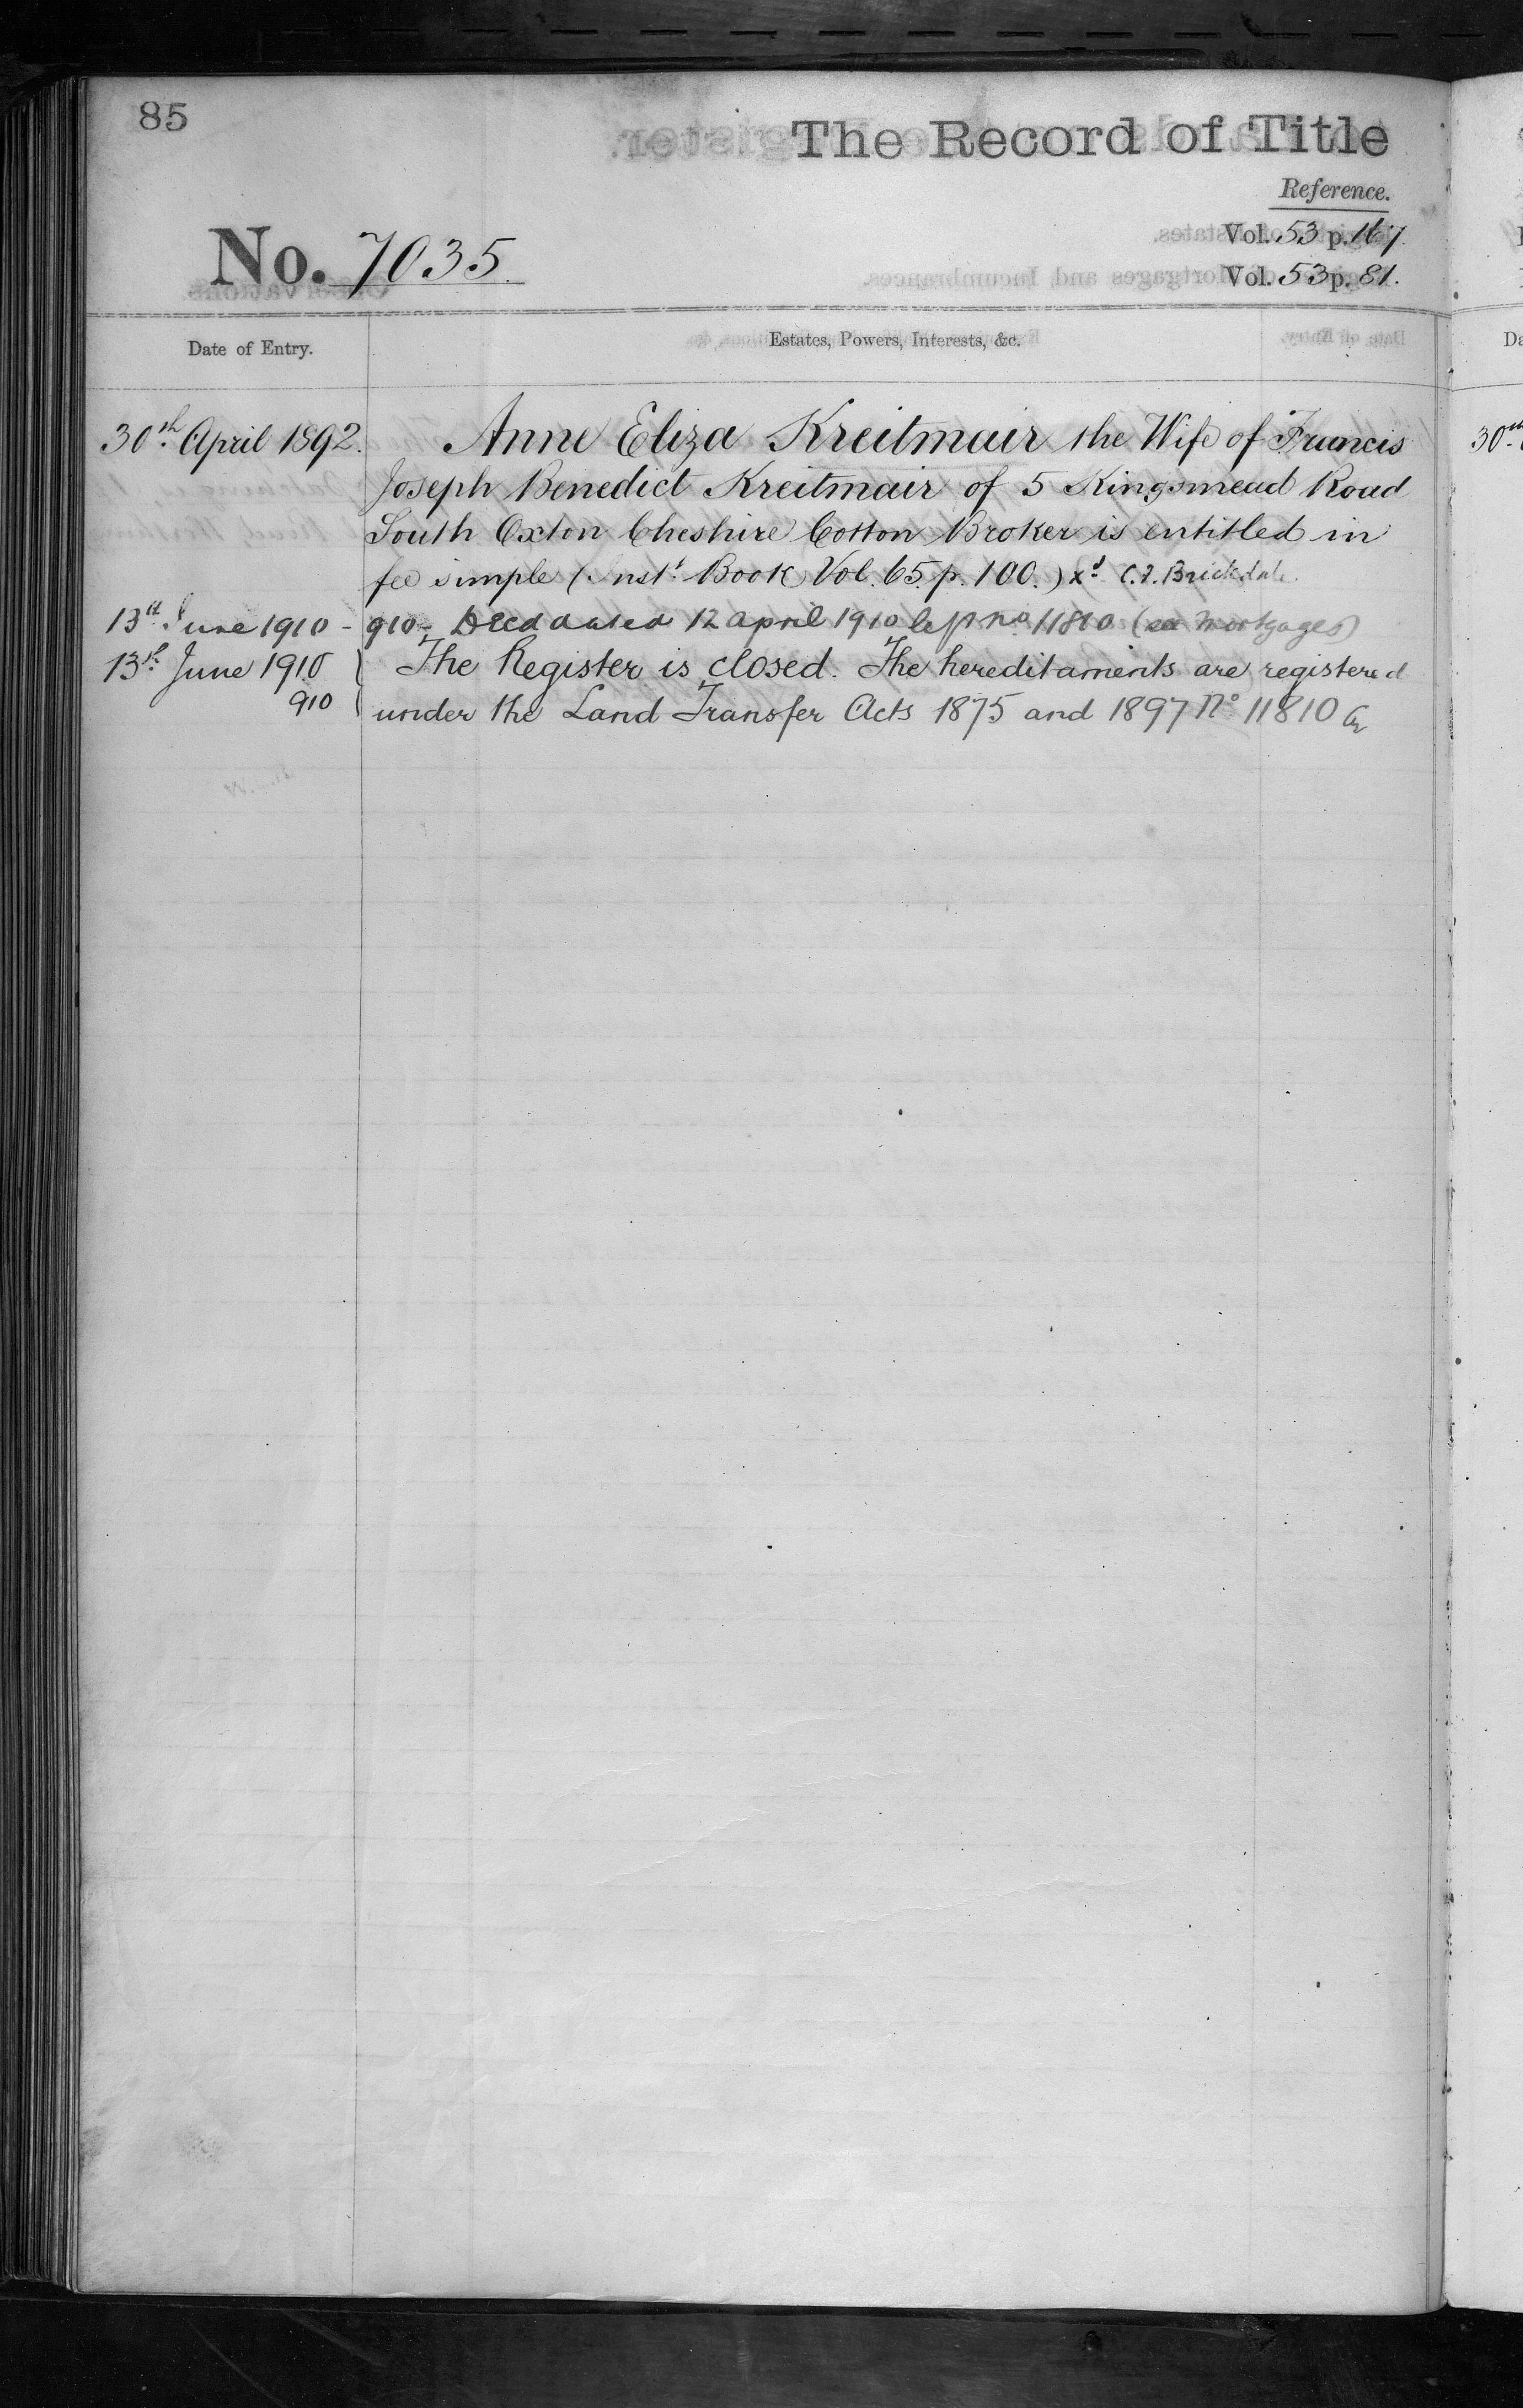 85
The Record of Title
Reference.
No. 7035.
Vol. 53 p. 167.
Vol. 53 p. 81.
Date of Entry.
Estates, Powers, Interests, &c.
30th April 1892. Anne Eliza Kreitmair the Wife of Francis
Joseph Benedict Kreitmair of 5 Kingsmead Road
South Oxton Cheshire Cotton Broker is entitled in
fee simple (Inst. Book Vol. 65. p. 100.) xd. C.F. Brickdale.
13th June 1910 - 910 - Deed dated 12 April 1910 No. 11810 (Mortgages)
13th June 1910 The Register is closed. The hereditaments are registered
910 under the Land Transfer Acts 1875 and 1897 No 11810
30th